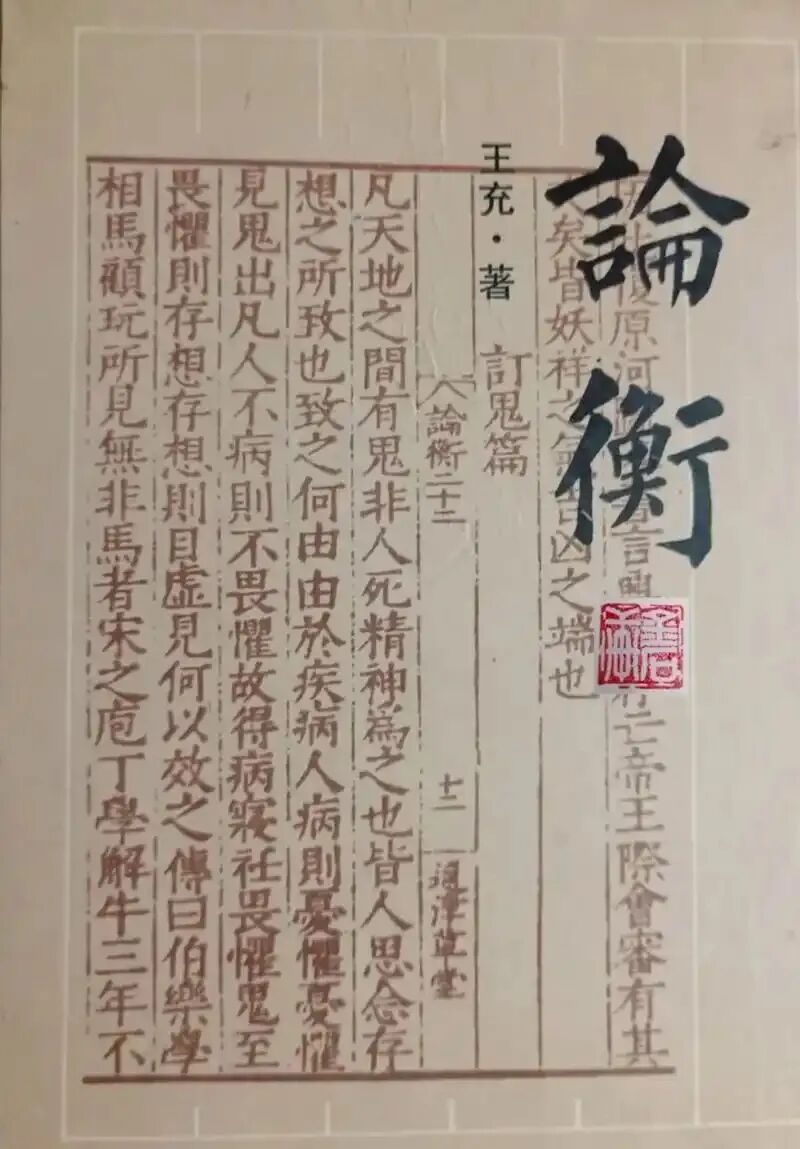 論衡
王充·著
復原河言亡帝王際會審有其
矣皆妖祥之凶之端也
訂鬼篇
論衡二十二
十二
通津草堂
凡天地之間有鬼非人死精神為之也皆人思念存
想之所致也致之何由由於疾病人病則憂懼憂懼
見鬼出凡人不病則不畏懼故得病寑衽畏懼鬼至
畏懼則存想存想則目虛見何以效之傳曰伯樂學
相馬顧玩所見無非馬者宋之庖丁學解牛三年不